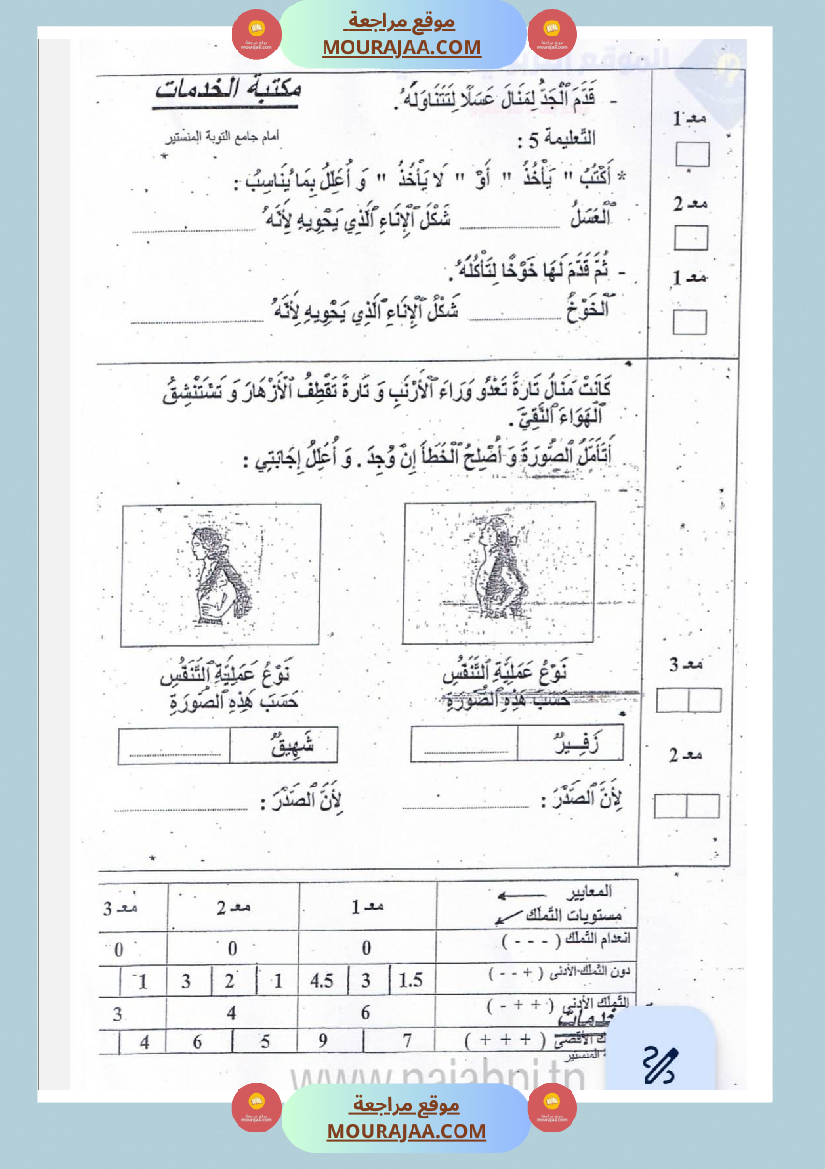 موقع مراجعة
MOURAJAA.COM
مكتبة الخدمات
أمام جامع التوبة المنستير
- قَدَّمَ ٱلْجَدُّ لِمَنَالَ عَسَلًا لِتَتَنَاوَلَهُ.
مع 1
التعليمة 5 :
* أَكْتُبُ " يَأْخُذُ " أَوْ " لَا يَأْخُذُ " وَ أُعَلِّلُ بِمَا يُنَاسِبُ :
مع 2
ٱلْعَسَلُ ............ شَكْلَ ٱلْإِنَاءِ ٱلَّذِي يَحْوِيهِ لِأَنَّهُ ............
- ثُمَّ قَدَّمَ لَهَا خَوْخًا لِتَأْكُلَهُ.
مع 1
ٱلْخَوْخُ ............ شَكْلَ ٱلْإِنَاءِ ٱلَّذِي يَحْوِيهِ لِأَنَّهُ ............
كَانَتْ مَنَالُ تَارةً تَعْدُو وَرَاءَ ٱلْأَرْنَبِ وَ تَارةً تَقْطِفُ ٱلْأَزْهَارَ وَ تَسْتَنْشِقُ
ٱلْهَوَاءَ ٱلنَّقِيَّ .
أَتَأَمَّلُ ٱلصُّورَةَ وَ أُصْلِحُ ٱلْخَطَأَ إِنْ وُجِدَ . وَ أُعَلِّلُ إِجَابَتِي :
مع 3
نَوْعُ عَمَلِيَّةِ ٱلتَّنَفُّسِ
حَسَبَ هَذِهِ ٱلصُّورَةِ
نَوْعُ عَمَلِيَّةِ ٱلتَّنَفُّسِ
حَسَبَ هَذِهِ ٱلصُّورَةِ
زَفِيرٌ ............
شَهِيقٌ ............
مع 2
لِأَنَّ ٱلصَّدْرَ : ............
لِأَنَّ ٱلصَّدْرَ : ............
المعايير
مستويات التملك
مع 1
مع 2
مع 3
انعدام التملك ( - - - )
0
0
0
دون التملك الأدنى ( + - - )
1.5 3 4.5
1 2 3
1
التملك الأدنى ( + + - )
6
4
3
الأقصى ( + + + )
7 9
5 6
4
المنستير
www.najahni.tn
موقع مراجعة
MOURAJAA.COM